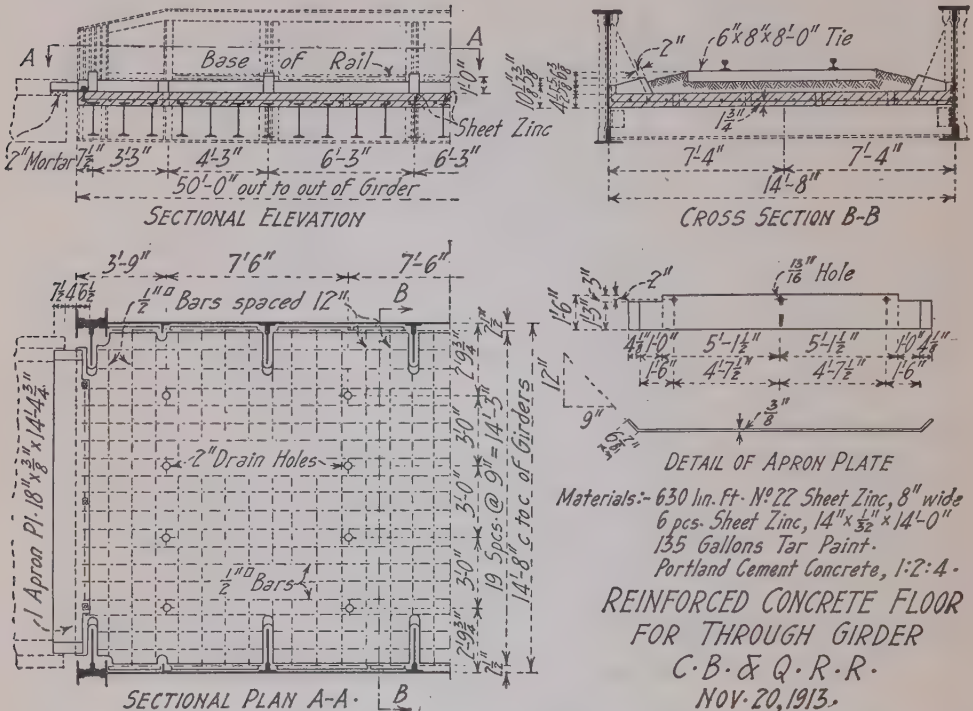 A
A
Base of Rail
1'-0"
Sheet Zinc
2" Mortar
7½"
3'-3"
4'-3"
6'-3"
6'-3"
50'-0" out to out of Girder
SECTIONAL ELEVATION
2"
6"x8"x8'-0" Tie
1¾"
7'-4"
7'-4"
14'-8"
CROSS SECTION B-B
3'-9"
7'6"
7'-6"
7½"
4"
6½"
½"□ Bars spaced 12"
B
2½"
2'-9¾"
3'-0"
3'-0"
3'-0"
2'-9¾"
2½"
19 Spcs. @ 9" = 14'-3"
14'-8" c to c of Girders
1 Apron Pl. 18"x⅜"x14'-4¾"
2" Drain Holes
½"□ Bars
SECTIONAL PLAN A-A.
B
13/16" Hole
2"
3"
1'-6"
1'-3"
4⅛"
1'-0"
5'-1½"
5'-1½"
1'-0"
4⅛"
1'-6"
4'-7½"
4'-7½"
1'-6"
12"
9"
⅜"
DETAIL OF APRON PLATE
Materials:- 630 lin. ft. Nº 22 Sheet Zinc, 8" wide
6 pcs. Sheet Zinc, 14"x1/32"x14'-0"
135 Gallons Tar Paint.
Portland Cement Concrete, 1:2:4.
REINFORCED CONCRETE FLOOR
FOR THROUGH GIRDER
C. B. & Q. R. R.
NOV. 20, 1913.